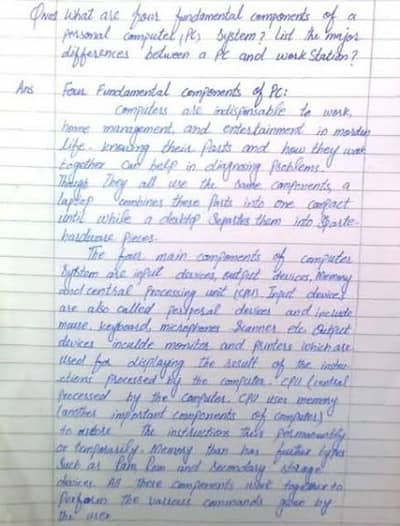 Ques What are four fundamental components of a
personal computer (PC) System? List the major
differences between a PC and work Station?
Ans Four Fundamental components of PC:
Computers are indispensable to work,
home management, and entertainment in mordern
life. knowing their Parts and how they work
together Can help in diagnosing problems.
Though They all use the Same components, a
laptop combines these Parts into one Compact
unit while a desktop Separtes them into Sparte
hardware pieces.
The four main components of computer
System are input devices, output devices, Memory
and central Processing unit (CPU). Input devices
are also called and include
mouse, keyboard, microphones Scanner etc. Output
devices inculde monitor and printers which are
used for displaying The result of the instru-
ctions processed by the computer. CPU (central
Processed by the Computer. CPU uses memory
(another important Components of Computer)
to the instructions permanently
or temporarily. Memory than has further types
Such as Ram Rom and Secondary Storage
devices. All these components work together to
Perform the various commands by
the user.